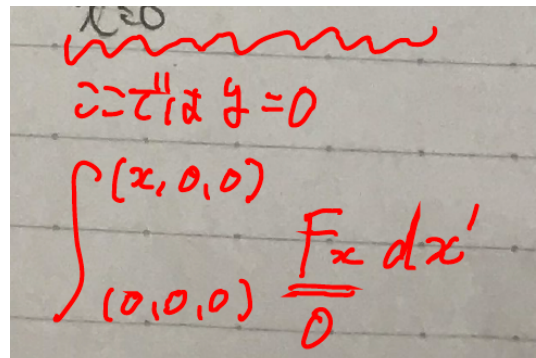 x=0
ここでは y=0
∫_{(0,0,0)}^{(x,0,0)} F_x dx'
0